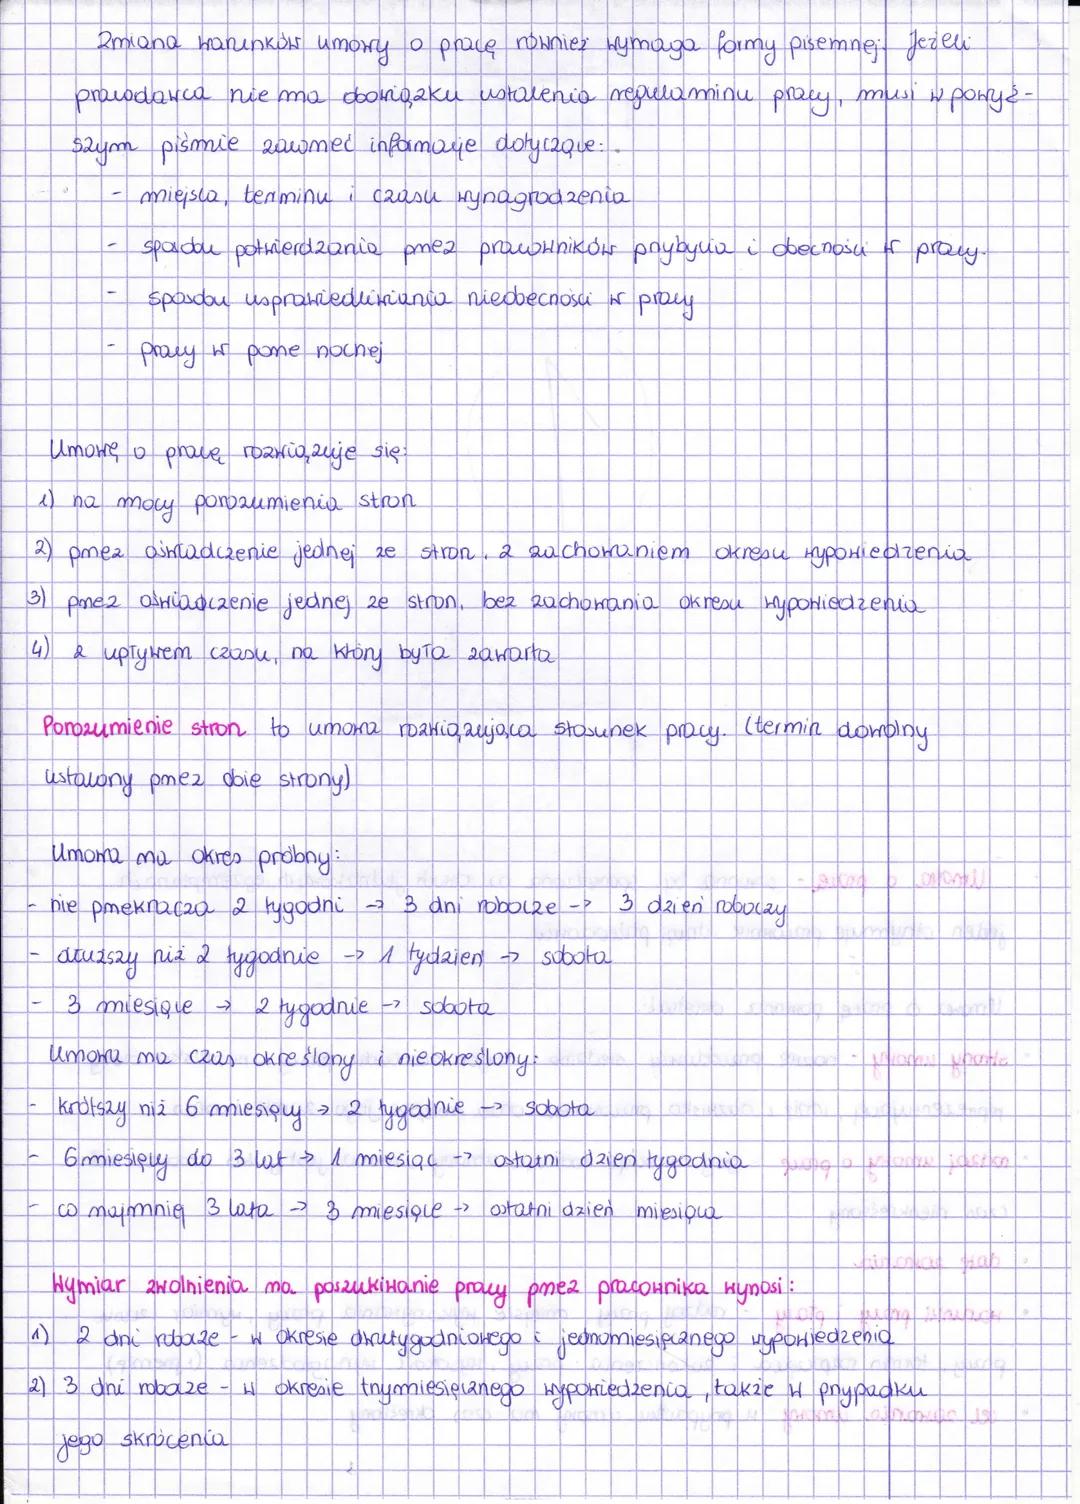 Zmiana warunków umowy o pracę również wymaga formy pisemnej. Jeżeli
pracodawca nie ma obowiązku ustalenia regulaminu pracy, musi w powyż-
szym piśmie zawrzeć informacje dotyczące:
- miejsca, terminu i czasu wynagrodzenia
- sposobu potwierdzania przez pracowników przybycia i obecności w pracy.
- sposobu usprawiedliwiania nieobecności w pracy
- pracy w porze nocnej
Umowę o pracę rozwiązuje się:
1) na mocy porozumienia stron
2) przez oświadczenie jednej ze stron, z zachowaniem okresu wypowiedzenia
3) przez oświadczenie jednej ze stron, bez zachowania okresu wypowiedzenia
4) z upływem czasu, na który była zawarta
Porozumienie stron to umowa rozwiązująca stosunek pracy. (termin dowolny
ustalony przez obie strony)
Umowa na okres próbny:
- nie przekracza 2 tygodni → 3 dni robocze → 3 dzień roboczy
- dłuższy niż 2 tygodnie → 1 tydzień → sobota
- 3 miesiące → 2 tygodnie → sobota
Umowa na czas określony i nieokreślony:
- krótszy niż 6 miesięcy → 2 tygodnie → sobota
- 6 miesięcy do 3 lat → 1 miesiąc → ostatni dzień tygodnia
- co najmniej 3 lata → 3 miesiące → ostatni dzień miesiąca
Wymiar zwolnienia na poszukiwanie pracy przez pracownika wynosi:
1) 2 dni robocze - w okresie dwutygodniowego i jednomiesięcznego wypowiedzenia
2) 3 dni robocze - w okresie trzymiesięcznego wypowiedzenia, także w przypadku
jego skrócenia